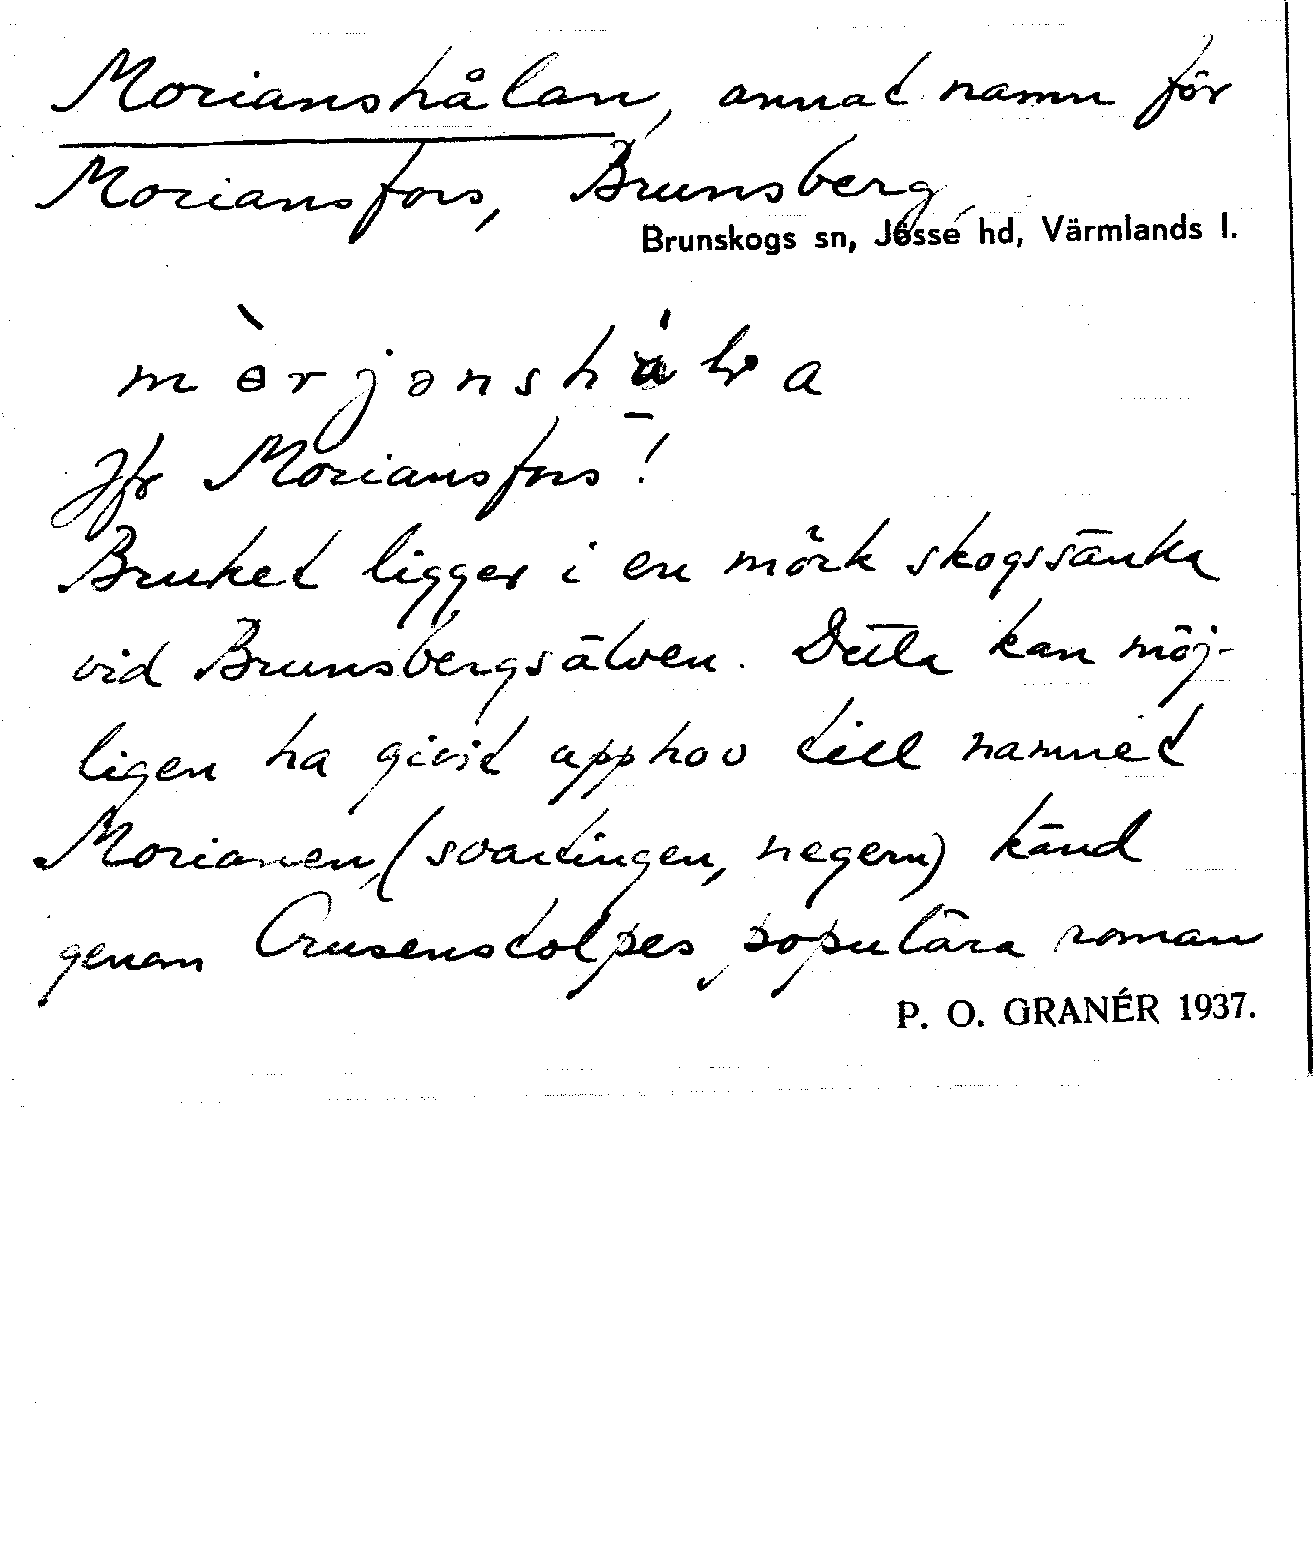 Morianshålan, annat namn för
Moriansfors, Brunsberg
Brunskogs sn, Jösse hd, Värmlands l.
Jfr Moriansfors!
Bruket ligger i en mörk skogssänka
vid Brunsbergsälven. Detta kan möj-
ligen ha givit upphov till namnet
Morianen, (svartingen, negern) känd
genom Crusenstolpes populära roman
P. O. GRANÉR 1937.